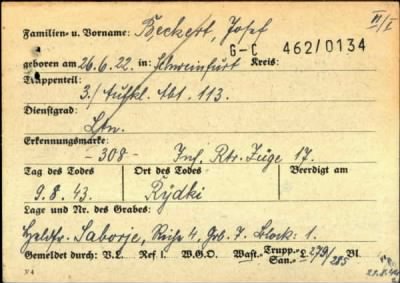 Familien- u. Vorname: Beckert, Josef
II/I
G-C 462/0134
geboren am 26.6.22. in: Schweinfurt Kreis:
Truppenteil:
3./Aufkl. Abt. 113.
Dienstgrad:
Ltn.
Erkennungsmarke:
-308- Inf. Rtr. Züge 17.
Tag des Todes Ort des Todes Beerdigt am
9.8.43. Rydki
Lage und Nr. des Grabes:
Saborje, Reihe 4. Grb. 7. Block: 1.
Gemeldet durch: V.L. Ref I. W.G.O. Wast.- Trupp.- San.- L 279/285 Bl.
V 4